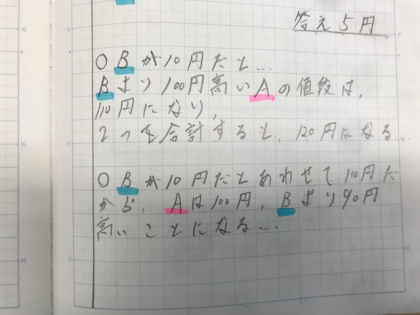 答え5円
○ Bが10円だと...
Bより100円高いAの値段は、
110円になり、
2つを合計すると、120円になる
○ Bが10円だとあわせて110円だ
から、Aは100円、Bより90円
高いことになる...